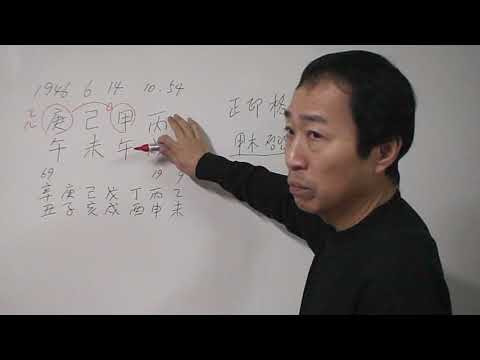 1946 6 14 10.54
庚 己 甲 丙
午 未 午
69 19 9
辛 庚 己 戊 丁 丙 乙
丑 子 亥 戌 酉 申 未
正印格
甲木